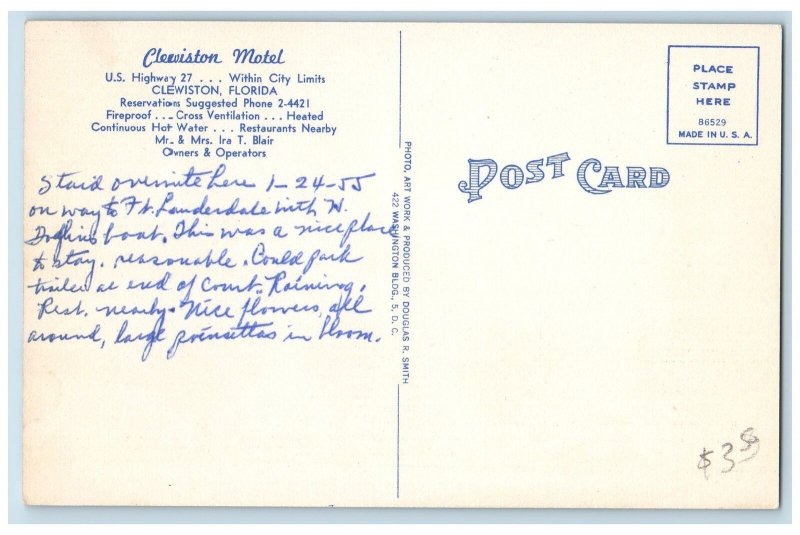 Clewiston Motel
U.S. Highway 27 . . . Within City Limits
CLEWISTON, FLORIDA
Reservations Suggested Phone 2-4421
Fireproof . . . Cross Ventilation . . . Heated
Continuous Hot Water . . . Restaurants Nearby
Mr. & Mrs. Ira T. Blair
Owners & Operators
Staid overnite here 1-24-55
on way to Ft. Lauderdale with H.
boat. This was a nice place
to stay. reasonable. Could park
trailer at end of court. Raining.
Rest. nearby. Nice flowers, all
around, large poinsettas in bloom.
PHOTO, ART WORK & PRODUCED BY DOUGLAS R. SMITH
422 WASHINGTON BLDG., 5, D. C.
POST CARD
PLACE
STAMP
HERE
86529
MADE IN U. S. A.
$3.50